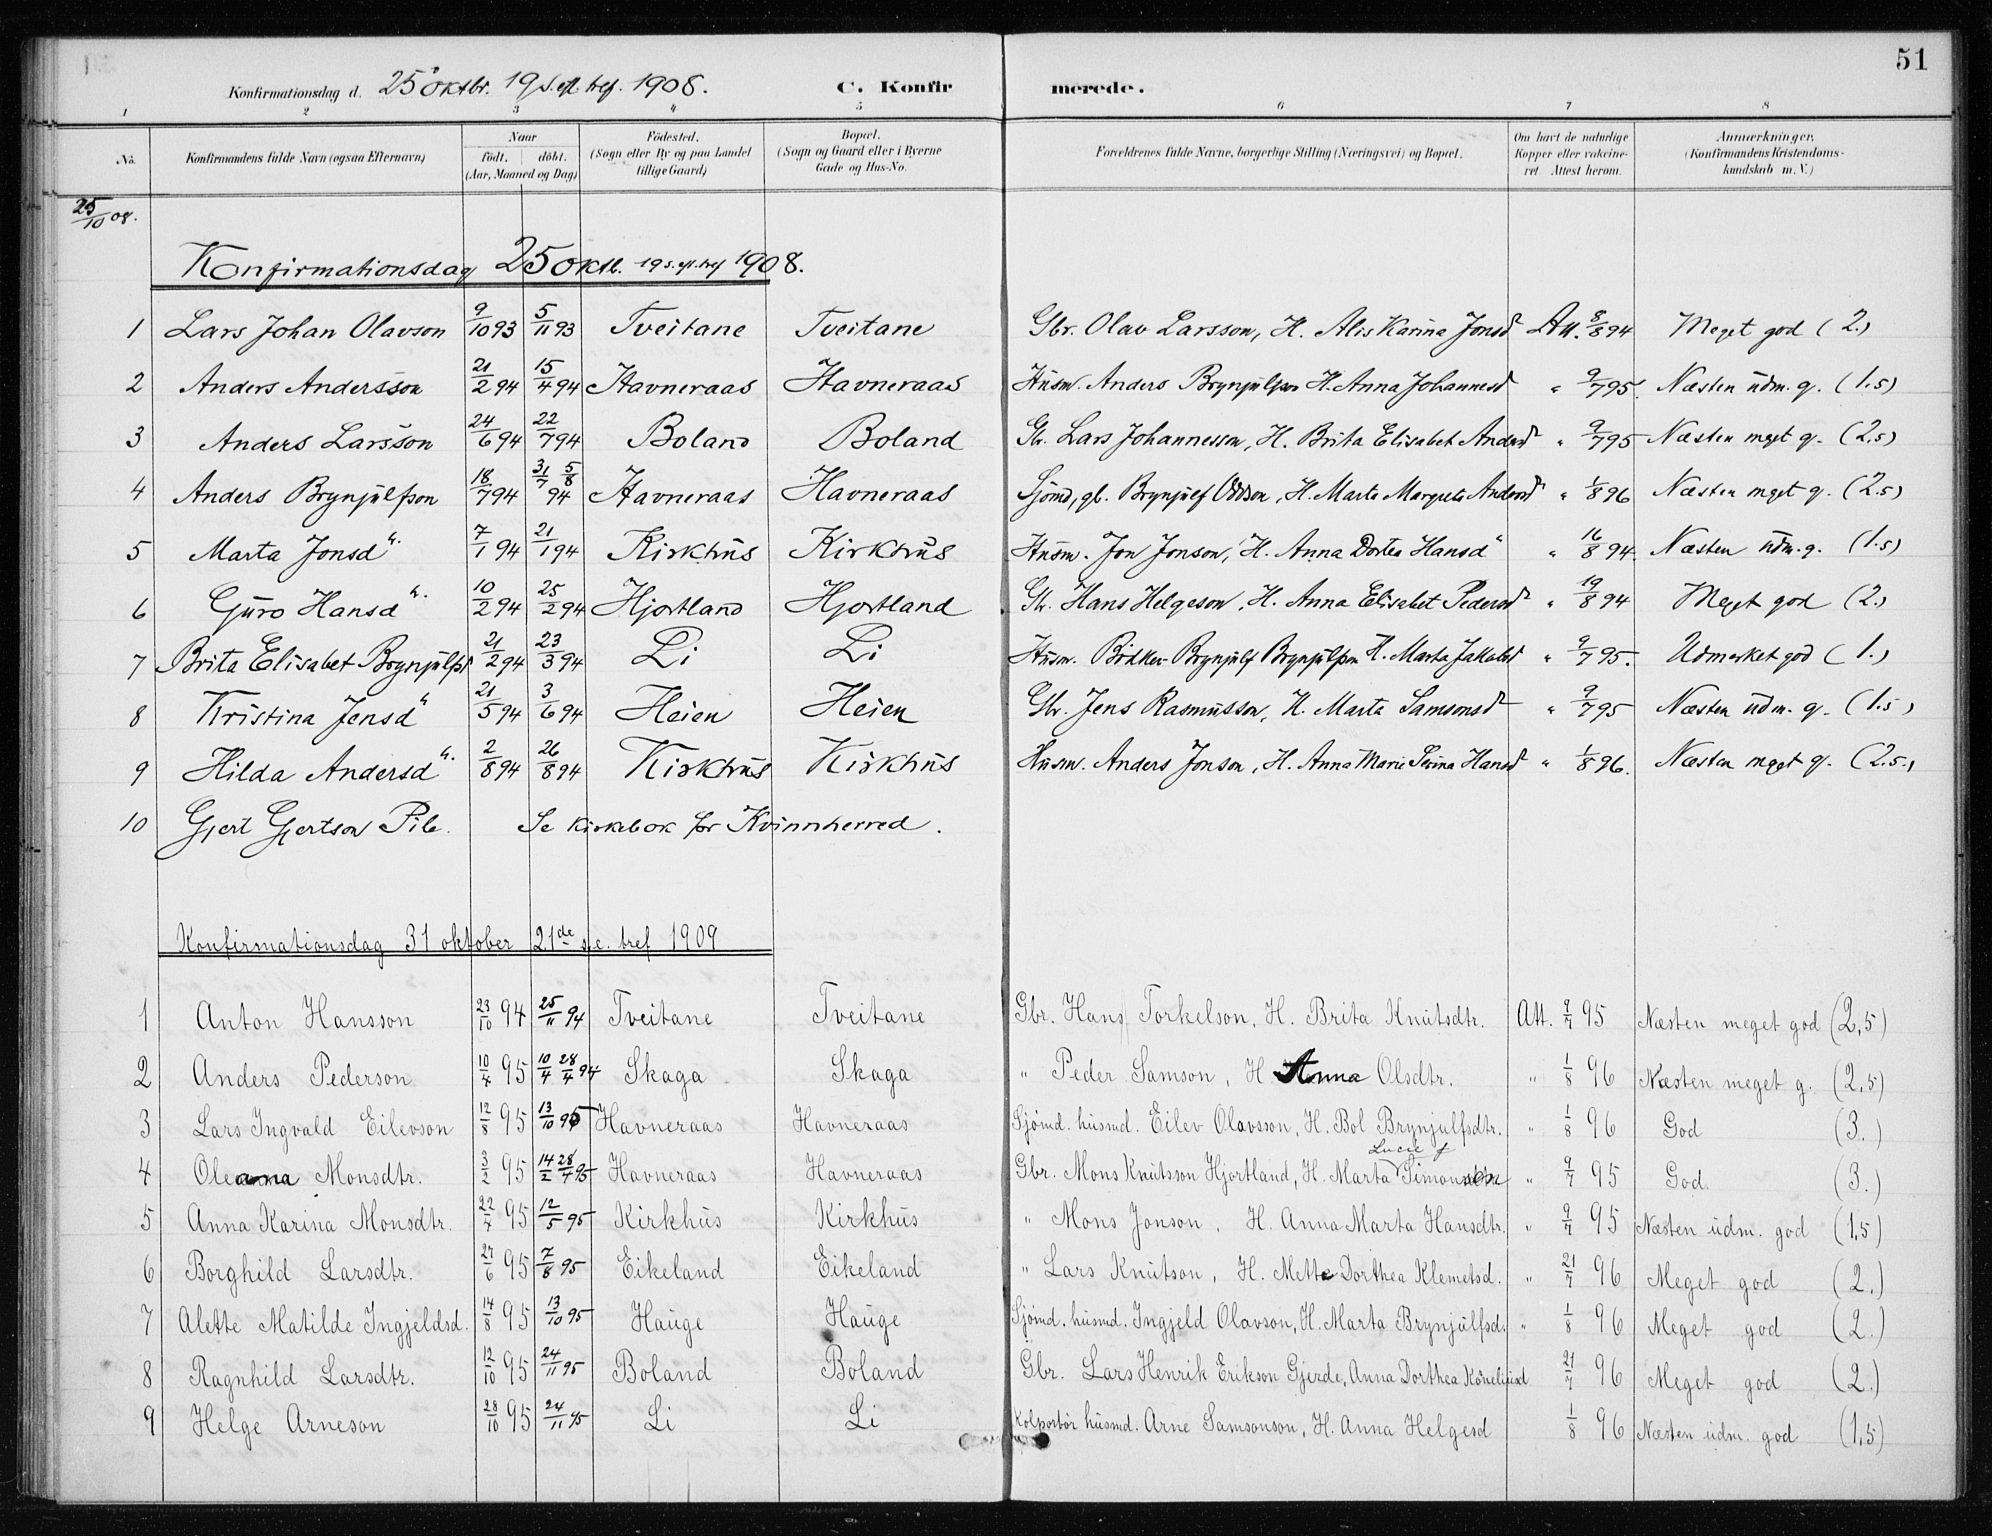 51
Konfirmationsdag d. 25 oktbr. 19 S. eft. tref. 1908.
C. Konfirmerede.
1 2 3 4 5 6 7 8
No. Konfirmandens fulde Navn (ogsaa Efternavn) Naar født. døbt. (Aar, Maaned og Dag) Födested. (Sogn eller By og paa Landet tillige Gaard) Bopæl. (Sogn og Gaard eller i Byerne Gade og Hus-No. Forældrenes fulde Navne, borgerlige Stilling (Næringsvei) og Bopæl. Om havt de naturlige Kopper eller vakcineret Attest herom. Anmærkninger. (Konfirmandens Kristendomskundskab m. V.)
25/10 08.
Konfirmationsdag 25 oktb. 19 s. eft. tref 1908.
1 Lars Johan Olavson 9/10 93 5/11 93 Tveitane Tveitane Gbr. Olav Larsson, H. Alis Karina Jonsd Att. 8/8 94 Meget god (2.)
2 Anders Andersson 21/2 94 15/4 94 Havneraas Havneraas Husm. Anders Brynjulfson H. Anna Johannesd " 9/7 95. Næsten udm. g. (1.5)
3 Anders Larsson 24/6 94 22/7 94 Boland Boland Gb. Lars Johannesson, H. Brita Elisabet Andersd " 9/7 95 Næsten meget g. (2.5)
4 Anders Brynjulfson 18/7 94 31/7 5/8 94 Havneraas Havneraas Sjömd, gb. Brynjulf Oddson, H. Marta Margreta Andersd " 1/8 96 Næsten meget g. (2.5)
5 Marta Jonsd". 7/1 94 21/1 94 Kirkhus Kirkhus Husm. Jon Jonson, H. Anna Dortea Hansd " 16/8 94. Næsten udm. g. (1.5)
6 Guro Hansd". 10/2 94 25/2 94 Hjortland Hjortland Gb. Hans Helgeson, H. Anna Elisabet Pedersd " 19/8 94 Meget god (2.)
7 Brita Elisabet Brynjulfsd 21/2 94 23/3 94 Li Li Husm. Bödker Brynjulf Brynjulfson H. Marta Jakobsd " 9/7 95. Udmerket god (1.)
8 Kristina Jensd" 21/5 94 3/6 94 Heien Heien Gbr. Jens Rasmusson, H. Marta Samsonsd " 9/7 95 Næsten udm. g. (1.5)
9 Hilda Andersd". 2/8 94 26/8 94 Kirkhus Kirkhus Husm. Anders Jonson, H. Anna Marie Serina Hansd " 1/8 96. Næsten meget g. (2.5.)
10 Gjert Gjertson Pile. Se kirkebok for Kvinnherred.
Konfirmationsdag 31 oktober 21de s. e. tref 1909
1 Anton Hansson 23/10 94 25/11 94 Tveitane Tveitane Gbr. Hans Torkelson, H. Brita Knutsdtr. Att. 9/7 95 Næsten meget god (2,5)
2 Anders Pederson 10/4 95 10/4 28/4 94 Skaga Skaga " Peder Samson, H Anna Olsdtr. " 1/8 96 Næsten meget g. (2,5)
3 Lars Ingvald Eilevson 12/8 95 13/10 95 Havneraas Havneraas Sjömd. husmd. Eilev Olavsson, H. Bol Brynjulfsdtr. " 1/8 96 God (3.)
4 Oleanna Monsdtr. 3/2 95 14/2 28/4 95 Havneraas Havneraas Gbr. Mons Knutsson Hjortland, H. Marta Lucie f Simonsen " 9/7 95 God. (3.)
5 Anna Karina Monsdtr. 22/4 95 12/5 95 Kirkhus Kirkhus " Mons Jonson, H. Anna Marta Hansdtr. " 9/7 95 Næsten udm. god (1,5)
6 Borghild Larsdtr. 27/6 95 7/8 95 Eikeland Eikeland " Lars Knutson, H. Mette Dorthea Klemetsd. " 21/7 96 Meget god (2.)
7 Alette Matilde Ingjeldsd. 14/8 95 13/10 95 Hauge Hauge Sjömd. husmd. Ingjeld Olavson, H. Marta Brynjulfsd. " 1/8 96 Meget god (2.)
8 Ragnhild Larsdtr. 12/10 95 24/11 95 Boland Boland Gbr. Lars Henrik Erikson Gjerde, Anna Dorthea 21/7 96 Meget god (2.)
9 Helge Arneson 28/10 95 24/11 95 Li Li Kolportör husmd. Arne Samsonson, H. Anna Helgesd 1/8 96 Næsten udm. god (1,5)